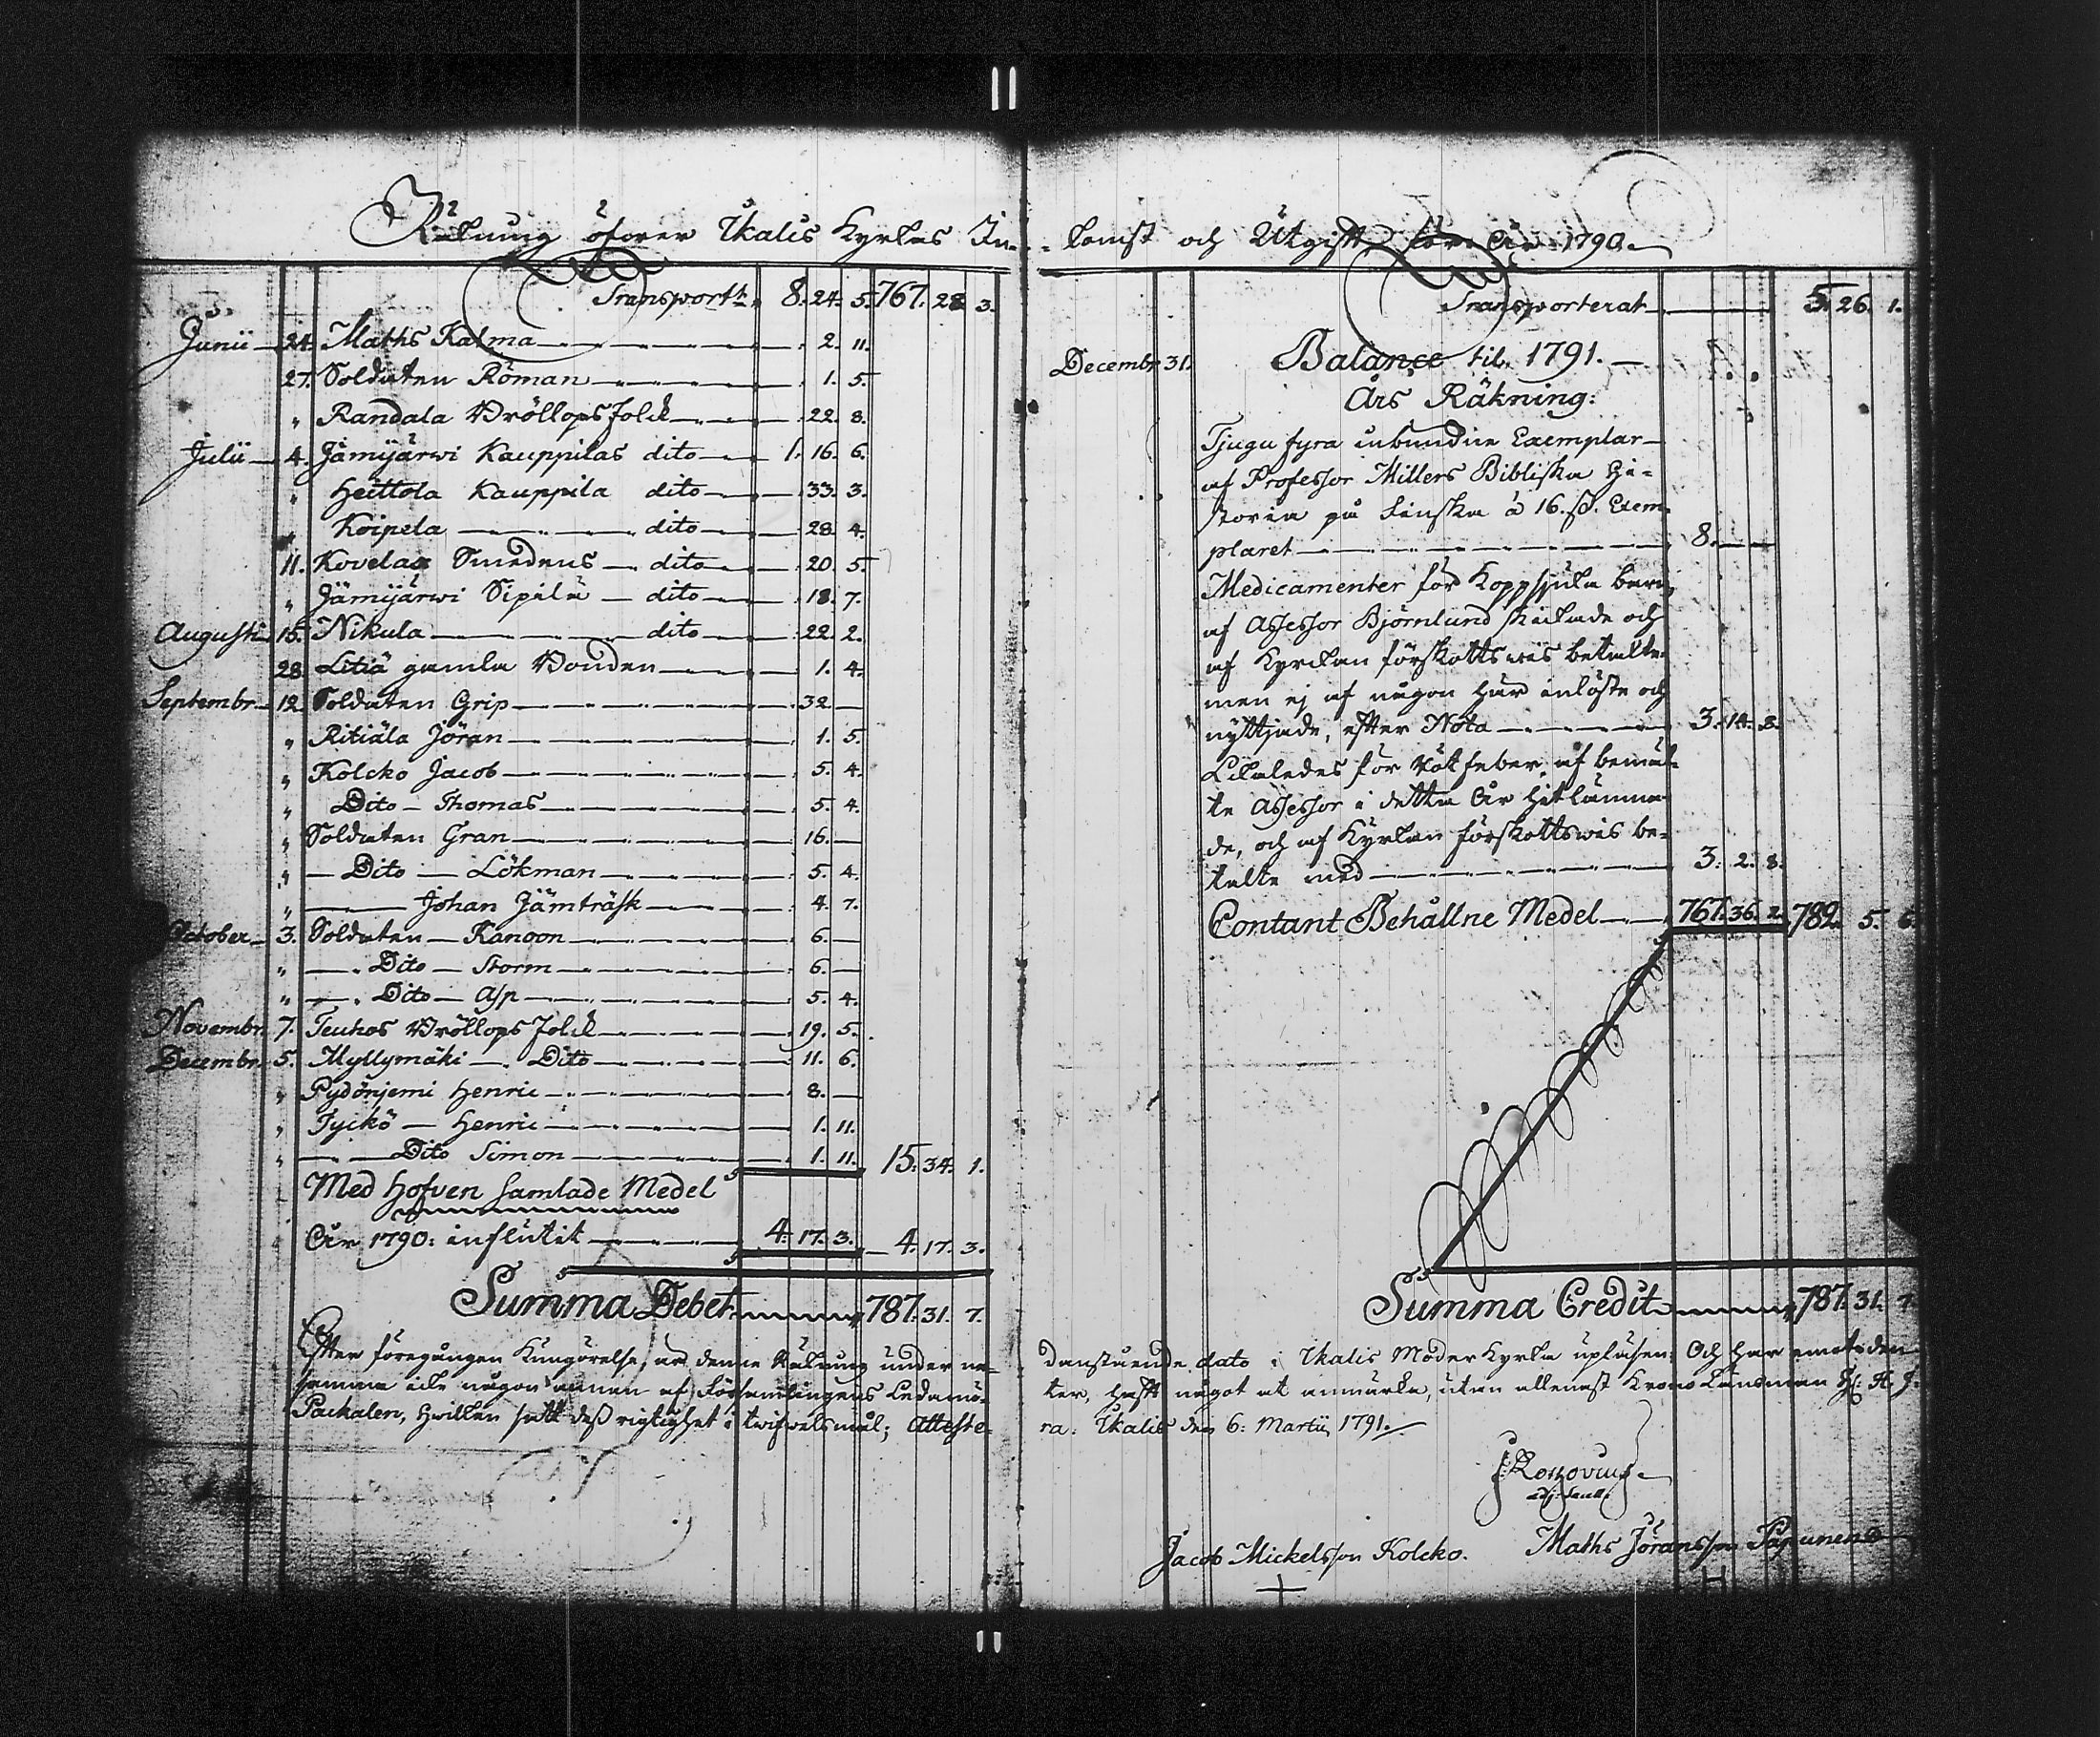 Räkning öfwer Ikalis Kyrkas In-
Transport: 8. 24. 5. 767. 28. 3.
Junii 24. Maths Kalma 2. 11.
27. Soldaten Roman 1. 5.
" Randala Bröllops folck 22. 8.
Julii 4. Jämijärwi Kauppilas dito 1. 16. 6.
" Heittola Kauppila dito 33. 3.
" Koipela dito 28. 4.
11. Kovelax Smedens dito 20. 5.
" Jämijärwi Sipilä dito 18. 7.
Augusti 15. Nikula dito 22. 2.
28. Litiä gamla Bonden 1. 4.
Septembr. 12. Soldaten Grip 32.
" Ritiäla Jöran 1. 5.
" Kolcko Jacob 5. 4.
" Dito Thomas 5. 4.
" Soldaten Gran 16.
" Dito Lökman 5. 4.
" Johan Jämträsk 4. 7.
October 3. Soldaten Kanoon 6.
" Dito Storm 6.
" Dito Asp 5. 4.
Novembr. 7. Teuhos Bröllops folck 19. 5.
Decembr. 5. Myllymäki Dito 11. 6.
" Pydönjemi Henric 8.
" Tyckö Henric 1. 11.
" Dito Simon 1. 11. 15. 34. 1.
Med Hofven samlade Medel
År 1790: influtit 4. 17. 3. 4. 17. 3.
Summa Debet 787. 31. 7.
Efter föregången Kungörelse, är denne Räkning under ne-
samma icke någon annan af Församlingens Ledamö-
Packalen, hwilken satt dess rigtighet i twifwelsmål; Atteste-
komst och Utgift för År 1790.
Transporterat 5. 26. 1.
Decembr. 31. Balance til 1791.
Års Räkning:
Tjugu fyra inbundne Exemplar
af Professor Millers Bibliska Hi-
storia på Finska à 16. ß. Exem-
plaret 8.
Medicamenter för Koppsjuka barn,
af Assessor Björnlund skickade och
af Kyrckan förskottswis betalte
men ej af någon här inlöste och
nyttjade, efter Nota 3. 14. 8.
Likaledes för Rötfeber, af bemäl-
te Assessor i detta År hitlämna-
de, och af Kyrkan förskottswis be-
talte med 3. 2. 8.
Contant Behållne Medel 767. 36. 2. 782. 5. 6.
Summa Credit 787. 31. 7.
danstående dato i Ikalis Moder Kyrka upläsen; Och har emot den
ter, haft något at anmärka, utan allenast Krono Länsman H:
ra. Ikalis den 6: Martii 1791.
Jacob Mickelsson Kolcko. Maths Jöransson